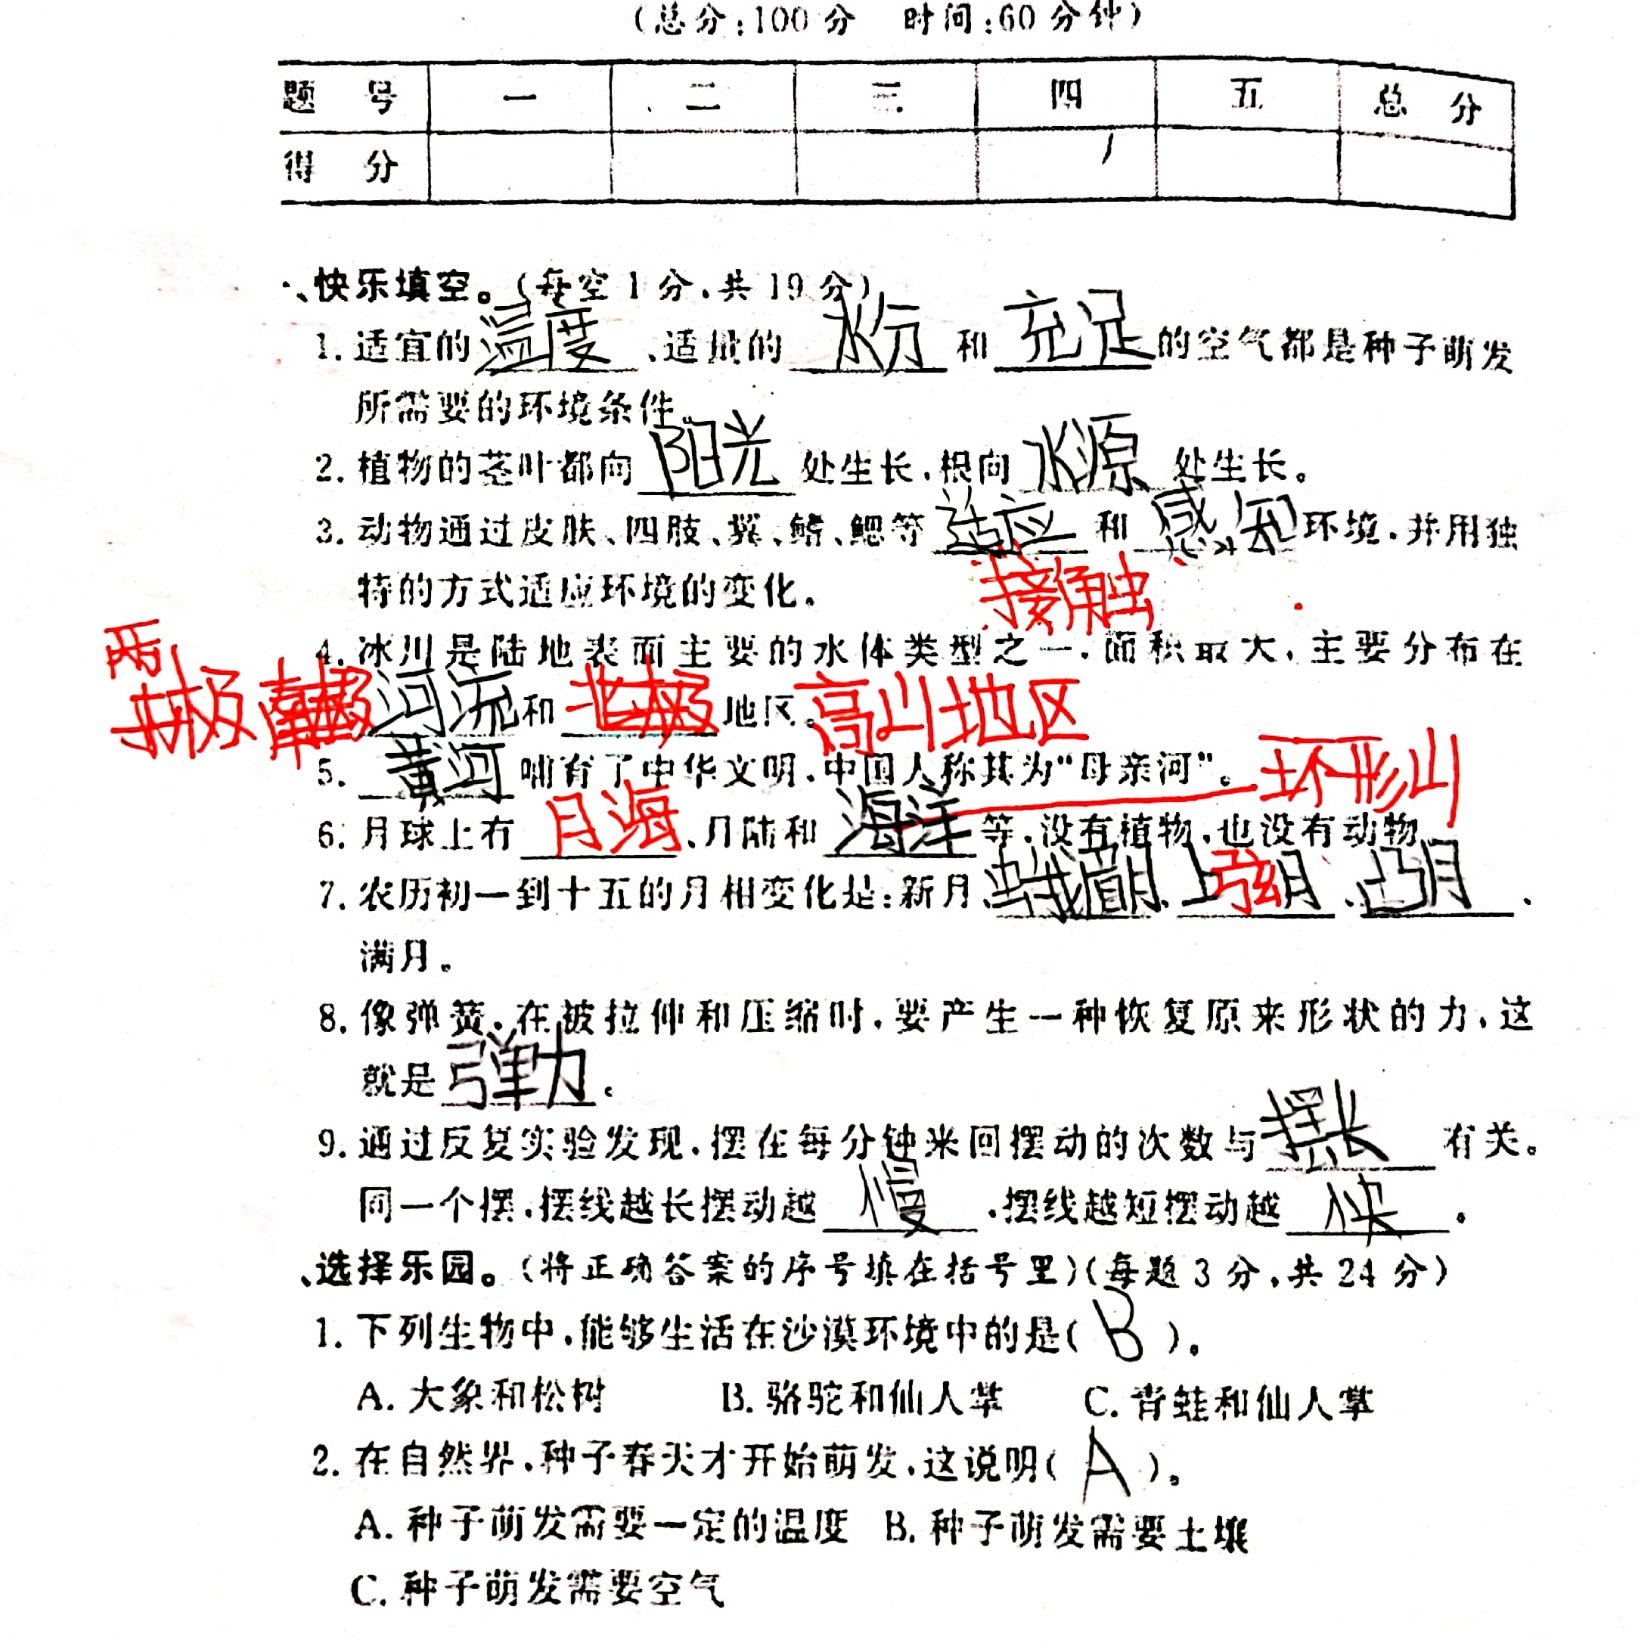 (总分:100分 时间:60分钟)
题 号 一 二 三 四 五 总 分
得 分
、快乐填空。(每空1分,共19分)
1. 适宜的 温度 、适量的 水分 和 充足 的空气都是种子萌发
所需要的环境条件。
2. 植物的茎叶都向 阳光 处生长,根向 水源 处生长。
3. 动物通过皮肤、四肢、翼、鳍、鳃等 适应 和 感知 环境,并用独
接触
特的方式适应环境的变化。
4. 冰川是陆地表面主要的水体类型之一,面积最大,主要分布在
两极 南极 河流 和 北极 地区。 高山地区
5. 黄河 哺育了中华文明,中国人称其为“母亲河”。 环形山
6. 月球上有 月海 、月陆和 海洋 等,没有植物,也没有动物。
7. 农历初一到十五的月相变化是:新月、 蛾眉月 、 上弦月 、 凸月 、
满月。
8. 像弹簧,在被拉伸和压缩时,要产生一种恢复原来形状的力,这
就是 弹力 。
9. 通过反复实验发现,摆在每分钟来回摆动的次数与 摆长 有关。
同一个摆,摆线越长摆动越 慢 ,摆线越短摆动越 快 。
、选择乐园。(将正确答案的序号填在括号里)(每题3分,共24分)
1. 下列生物中,能够生活在沙漠环境中的是( B )。
A. 大象和松树 B. 骆驼和仙人掌 C. 青蛙和仙人掌
2. 在自然界,种子春天才开始萌发,这说明( A )。
A. 种子萌发需要一定的温度 B. 种子萌发需要土壤
C. 种子萌发需要空气